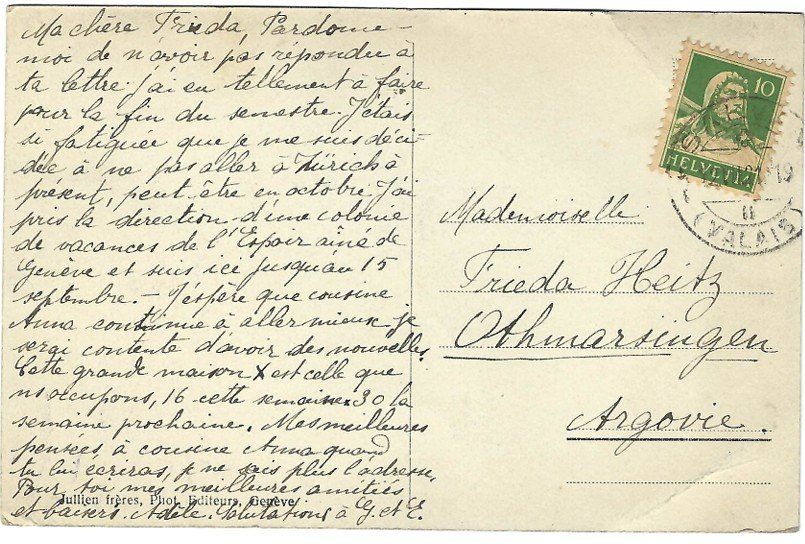 Ma chère Frieda, Pardonne-
moi de n'avoir pas répondu à
ta lettre j'ai eu tellement à faire
pour la fin du semestre. J'étais
si fatiguée que je me suis déci-
dée à ne pas aller à Zürich à
présent, peut être en octobre. J'ai
pris la direction d'une colonie
de vacances de l'Espoir aîné de
Genève et suis ici jusqu'au 15
septembre. – J'espère que cousine
Anna continue à aller mieux je
serai contente d'avoir des nouvelles.
Cette grande maison X est celle que
ns occupons, 16 cette semaine 30 la
semaine prochaine. Mes meilleures
pensées à cousine Anna quand
tu lui écriras, je ne sais plus l'adresse,
Pour toi mes meilleures amitiés
et baisers. Adèle. Salutations à G. et E.
Jullien frères, Phot. Editeurs, Genève
10
HELVETIA
(VALAIS)
Mademoiselle
Frieda Heitz
Othmarsingen
Argovie.